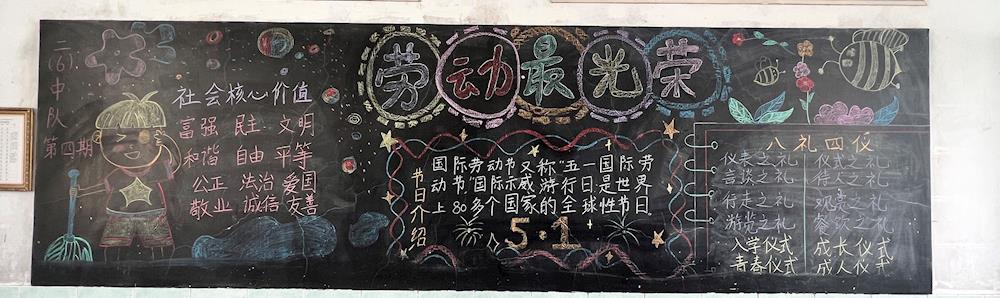 二(6)中队
第四期
劳动最光荣
社会核心价值
富强 民主 文明
和谐 自由 平等
公正 法治 爱国
敬业 诚信 友善
节日介绍
国际劳动节又称"五一国际劳
动节"国际示威游行日.是世界
上80多个国家的全球性节日.
5·1
八礼四仪
仪表之礼 仪式之礼
言谈之礼 待人之礼
行走之礼 观赏之礼
游览之礼 餐饮之礼
入学仪式 成长仪式
青春仪式 成人仪式